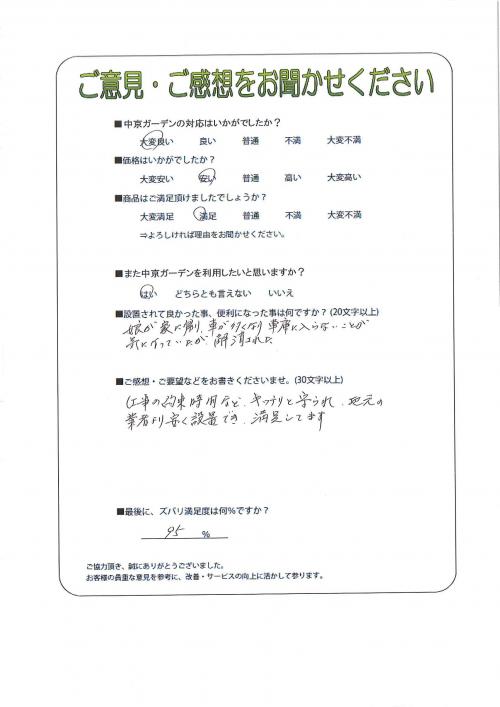 ご意見・ご感想をお聞かせください
■中京ガーデンの対応はいかがでしたか?
大変良い 良い 普通 不満 大変不満
■価格はいかがでしたか?
大変安い 安い 普通 高い 大変高い
■商品はご満足頂けましたでしょうか?
大変満足 満足 普通 不満 大変不満
⇒よろしければ理由をお聞かせください。
■また中京ガーデンを利用したいと思いますか?
はい どちらとも言えない いいえ
■設置されて良かった事、便利になった事は何ですか?(20文字以上)
娘が家に帰り、車が多くなり 車庫に入らないことが
気になっていたが、解消された
■ご感想・ご要望などをお書きくださいませ。(30文字以上)
工事の約束時間など、キッチリと守られ、地元の
業者より安く設置でき、満足してます
■最後に、ズバリ満足度は何%ですか?
95 %
ご協力頂き、誠にありがとうございました。
お客様の貴重な意見を参考に、改善・サービスの向上に活かして参ります。